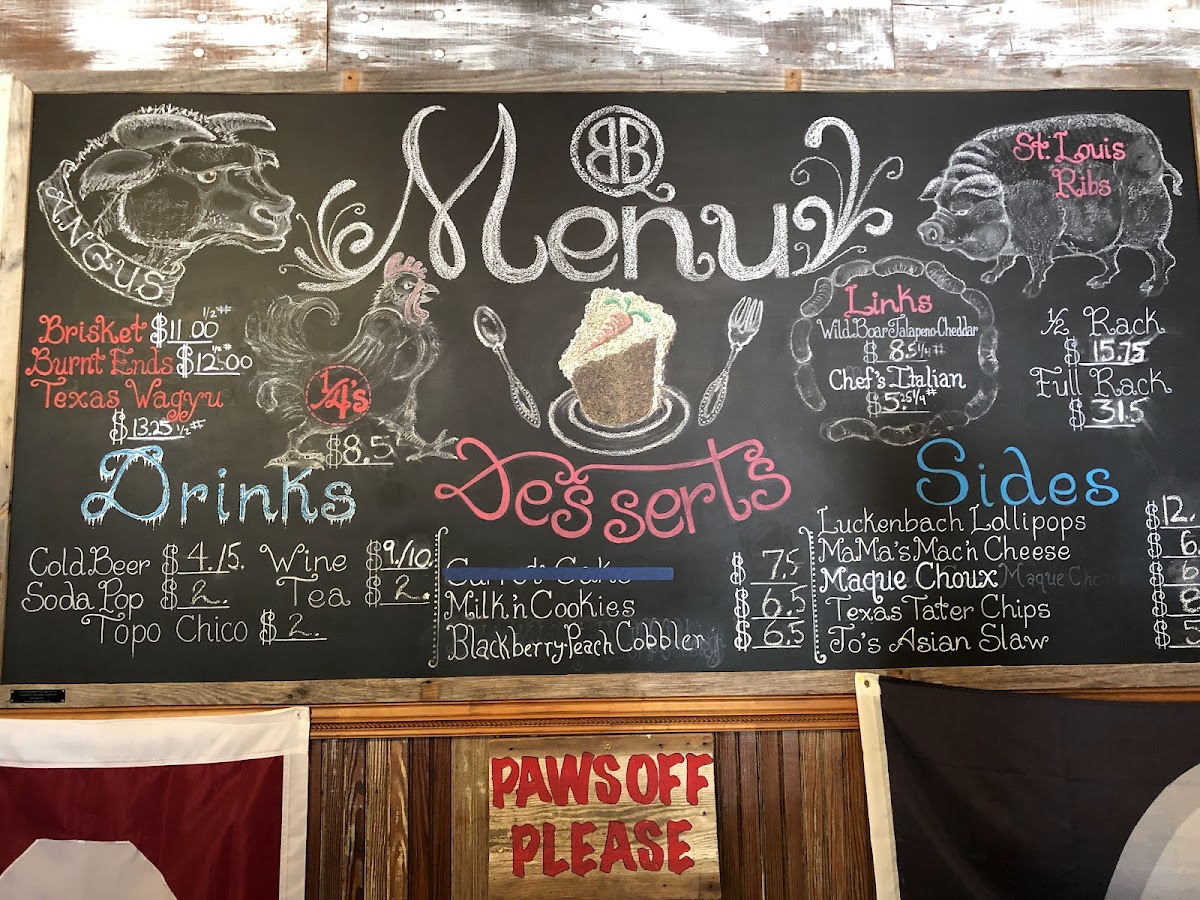 BB
Menu
ANGUS
Brisket $11.00 1/2#
Burnt Ends $12.00
Texas Wagyu
$13.25 1/2#
1/4's
$8.5
Links
Wild Boar Jalapeno-Cheddar
$8.5 1/4#
Chef's Italian
$5.25 1/4#
St. Louis
Ribs
1/2 Rack
$15.75
Full Rack
$31.5
Drinks
Cold Beer $4./5. Wine $9/10.
Soda Pop $2. Tea $2.
Topo Chico $2.
Desserts
$7.5
Milk 'n Cookies $6.5
Blackberry-Peach Cobbler $6.5
Sides
Luckenbach Lollipops $12.
MaMa's Mac 'n Cheese $6
Maque Choux $6
Texas Tater Chips $
Jo's Asian Slaw $5
PAWS OFF
PLEASE